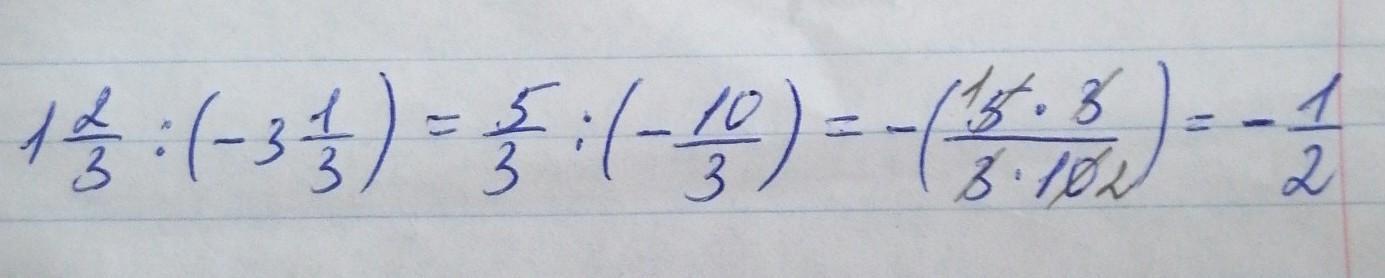 1 2/3 : (-3 1/3) = 5/3 : (-10/3) = -(15·3/3·102) = -1/2